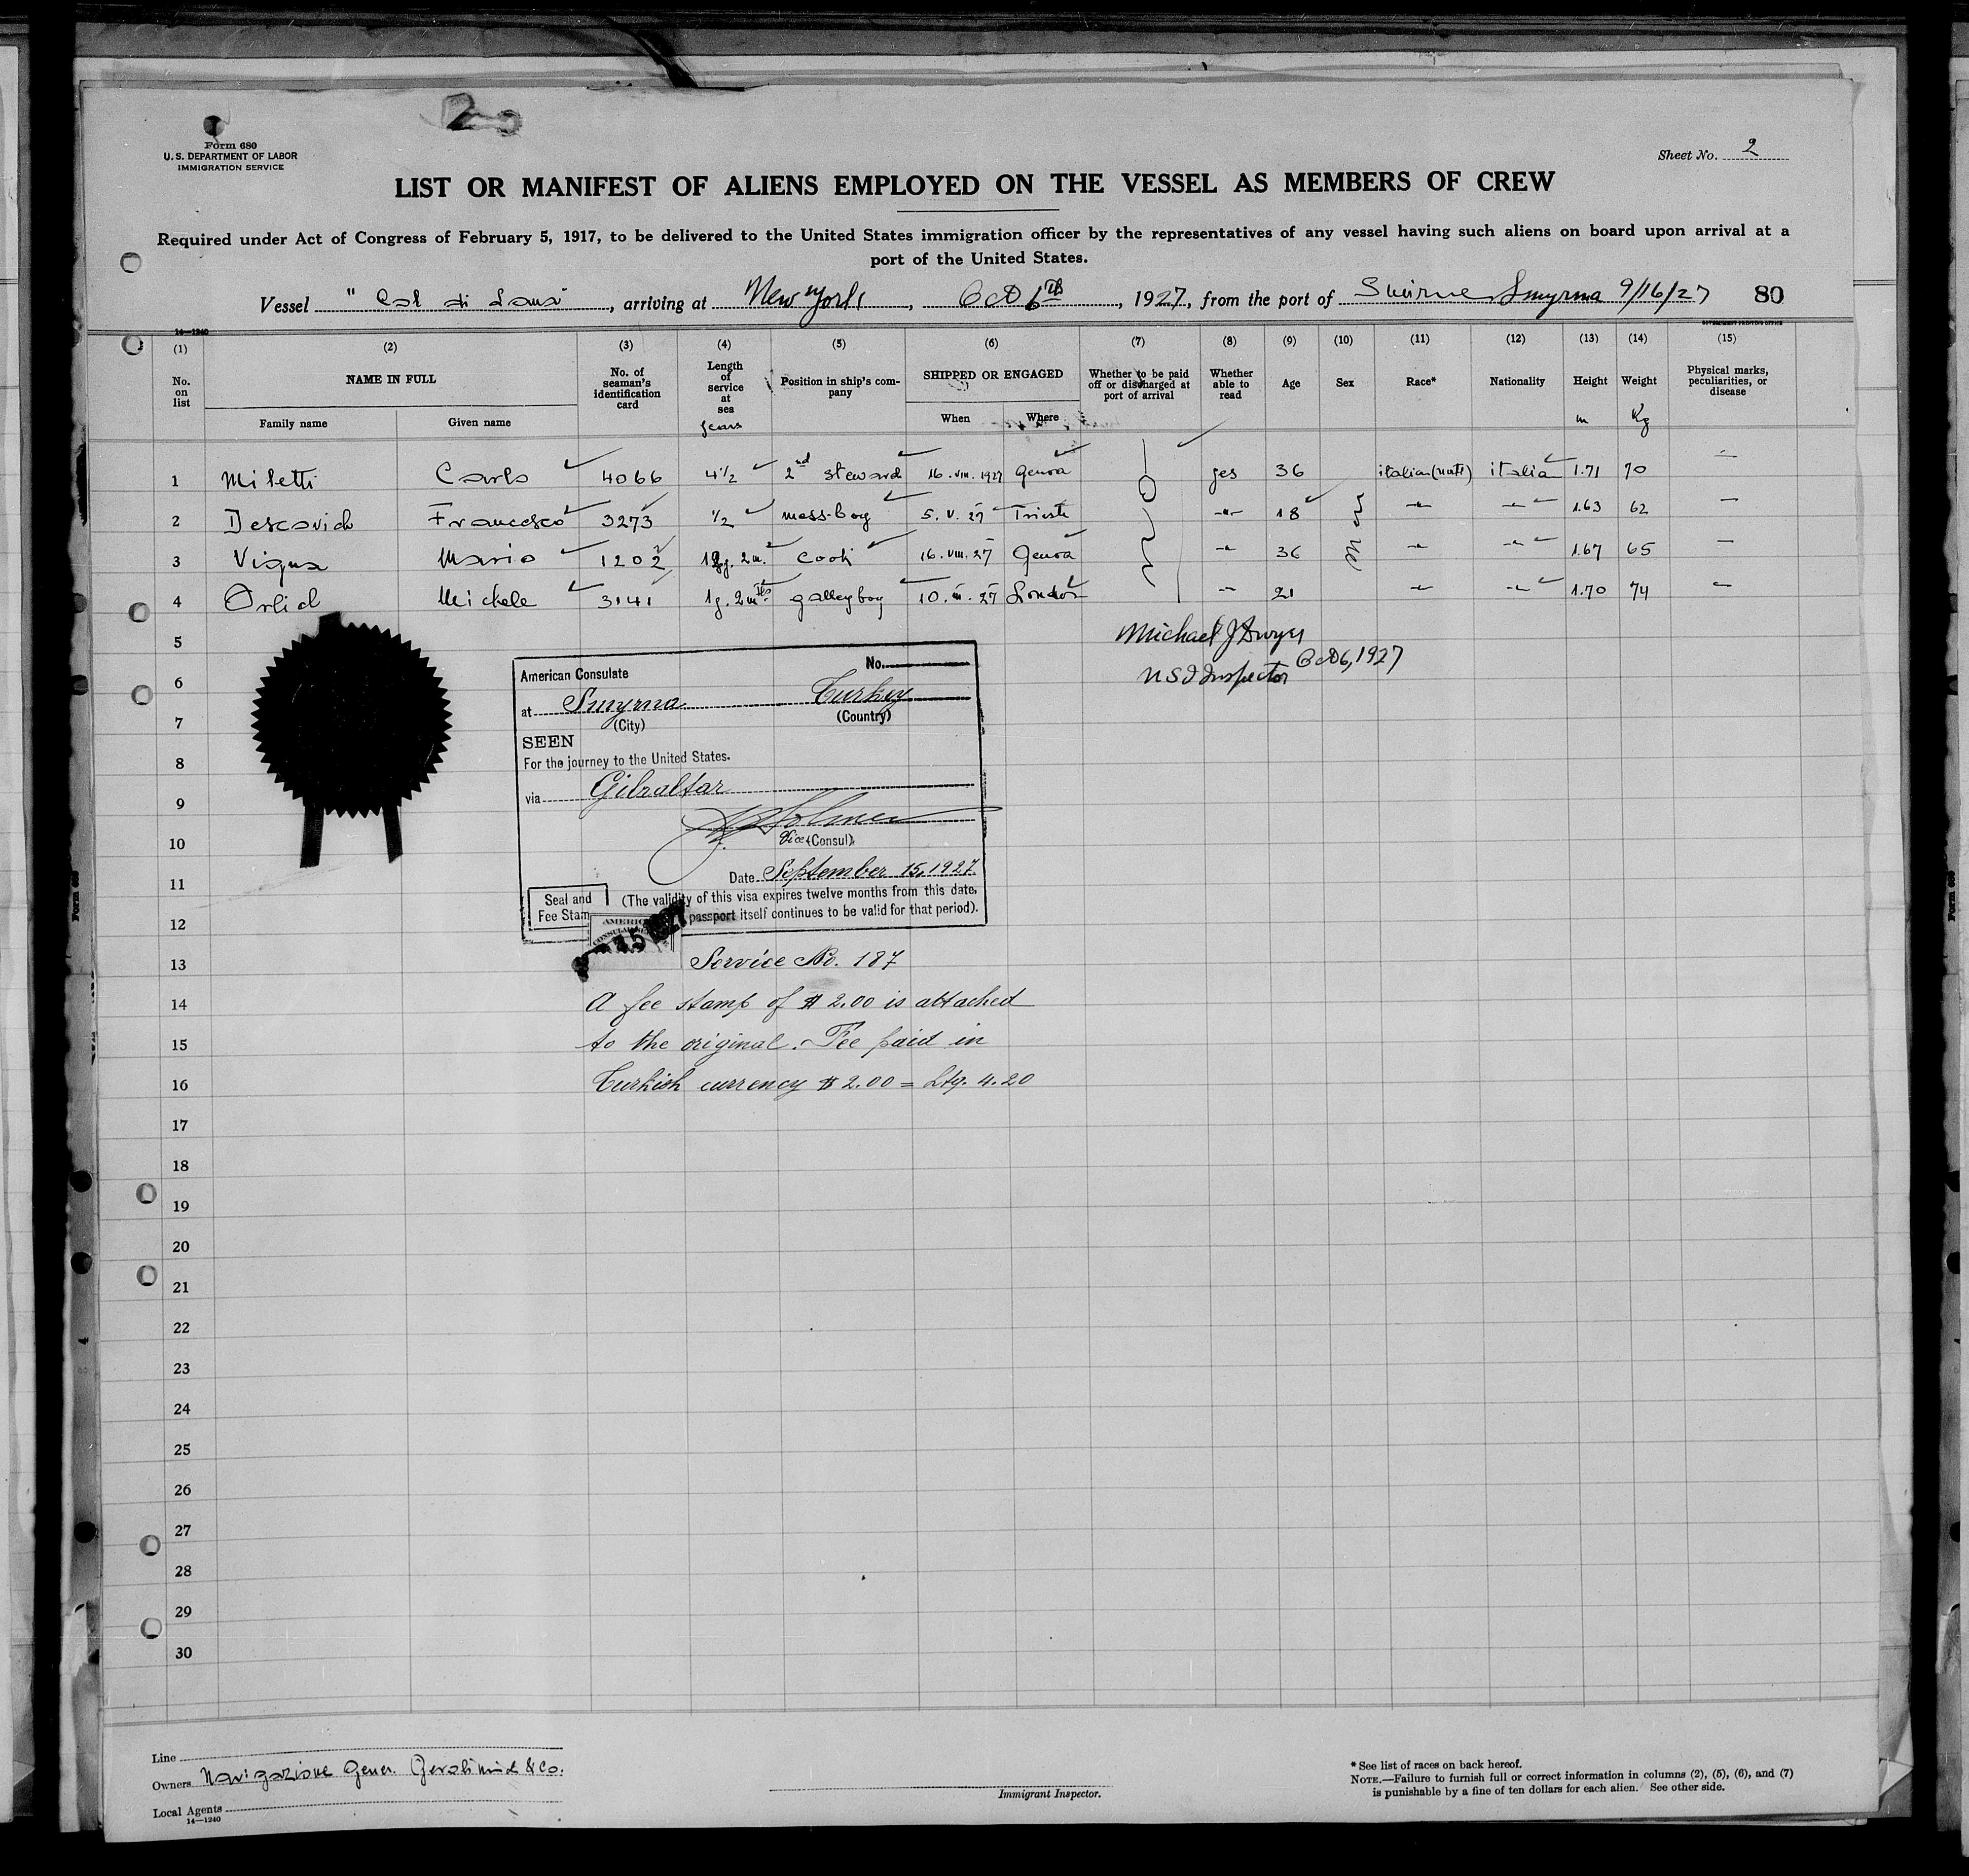 2
Form 680
U. S. DEPARTMENT OF LABOR
IMMIGRATION SERVICE
Sheet No. 2
LIST OR MANIFEST OF ALIENS EMPLOYED ON THE VESSEL AS MEMBERS OF CREW
Required under Act of Congress of February 5, 1917, to be delivered to the United States immigration officer by the representatives of any vessel having such aliens on board upon arrival at a
port of the United States.
Vessel "Col di Lana", arriving at New York, Oct 6th, 1927, from the port of Smirne Smyrna 9/16/27 80
14—1240 GOVERNMENT PRINTING OFFICE
(1) (2) (3) (4) (5) (6) (7) (8) (9) (10) (11) (12) (13) (14) (15)
No. on list NAME IN FULL Family name Given name No. of seaman's identification card Length of service at sea years Position in ship's company SHIPPED OR ENGAGED When Where Whether to be paid off or discharged at port of arrival Whether able to read Age Sex Race* Nationality Height m Weight Kg Physical marks, peculiarities, or disease
1 Miletti Carlo 4066 4 1/2 2nd steward 16. VIII. 1927 Genova yes 36 italian italia 1.71 70 —
2 Descovich Francesco 3273 1/2 mess-boy 5. V. 27 Trieste -"- 18 -"- -"- 1.63 62 —
3 Vigna Mario 1202 2m. cook 16. VIII. 27 Genova -"- 36 -"- -"- 1.67 65 —
4 Orlich Michele 3141 1y. 2mths galley boy 10. III. 27 London -"- 21 -"- -"- 1.70 74 —
5
Michael J Dwyer
US I Inspector Oct 6, 1927
6
7
8
9
10
11
12
13
14
15
16
17
18
19
20
21
22
23
24
25
26
27
28
29
30
American Consulate No.
at Smyrna Turkey
(City) (Country)
SEEN
For the journey to the United States.
via Gibraltar
Vice (Consul)
Date September 15, 1927.
Seal and
Fee Stam
(The validity of this visa expires twelve months from this date,
passport itself continues to be valid for that period).
Service No. 187
A fee stamp of $ 2.00 is attached
to the original. Fee paid in
Turkish currency $ 2.00 = Ltq. 4.20
Line
Owners Navigazione Gener. Gerolimich & Co.
Local Agents
14—1240
Immigrant Inspector.
* See list of races on back hereof.
NOTE.—Failure to furnish full or correct information in columns (2), (5), (6), and (7)
is punishable by a fine of ten dollars for each alien. See other side.
Form 680
Form 680